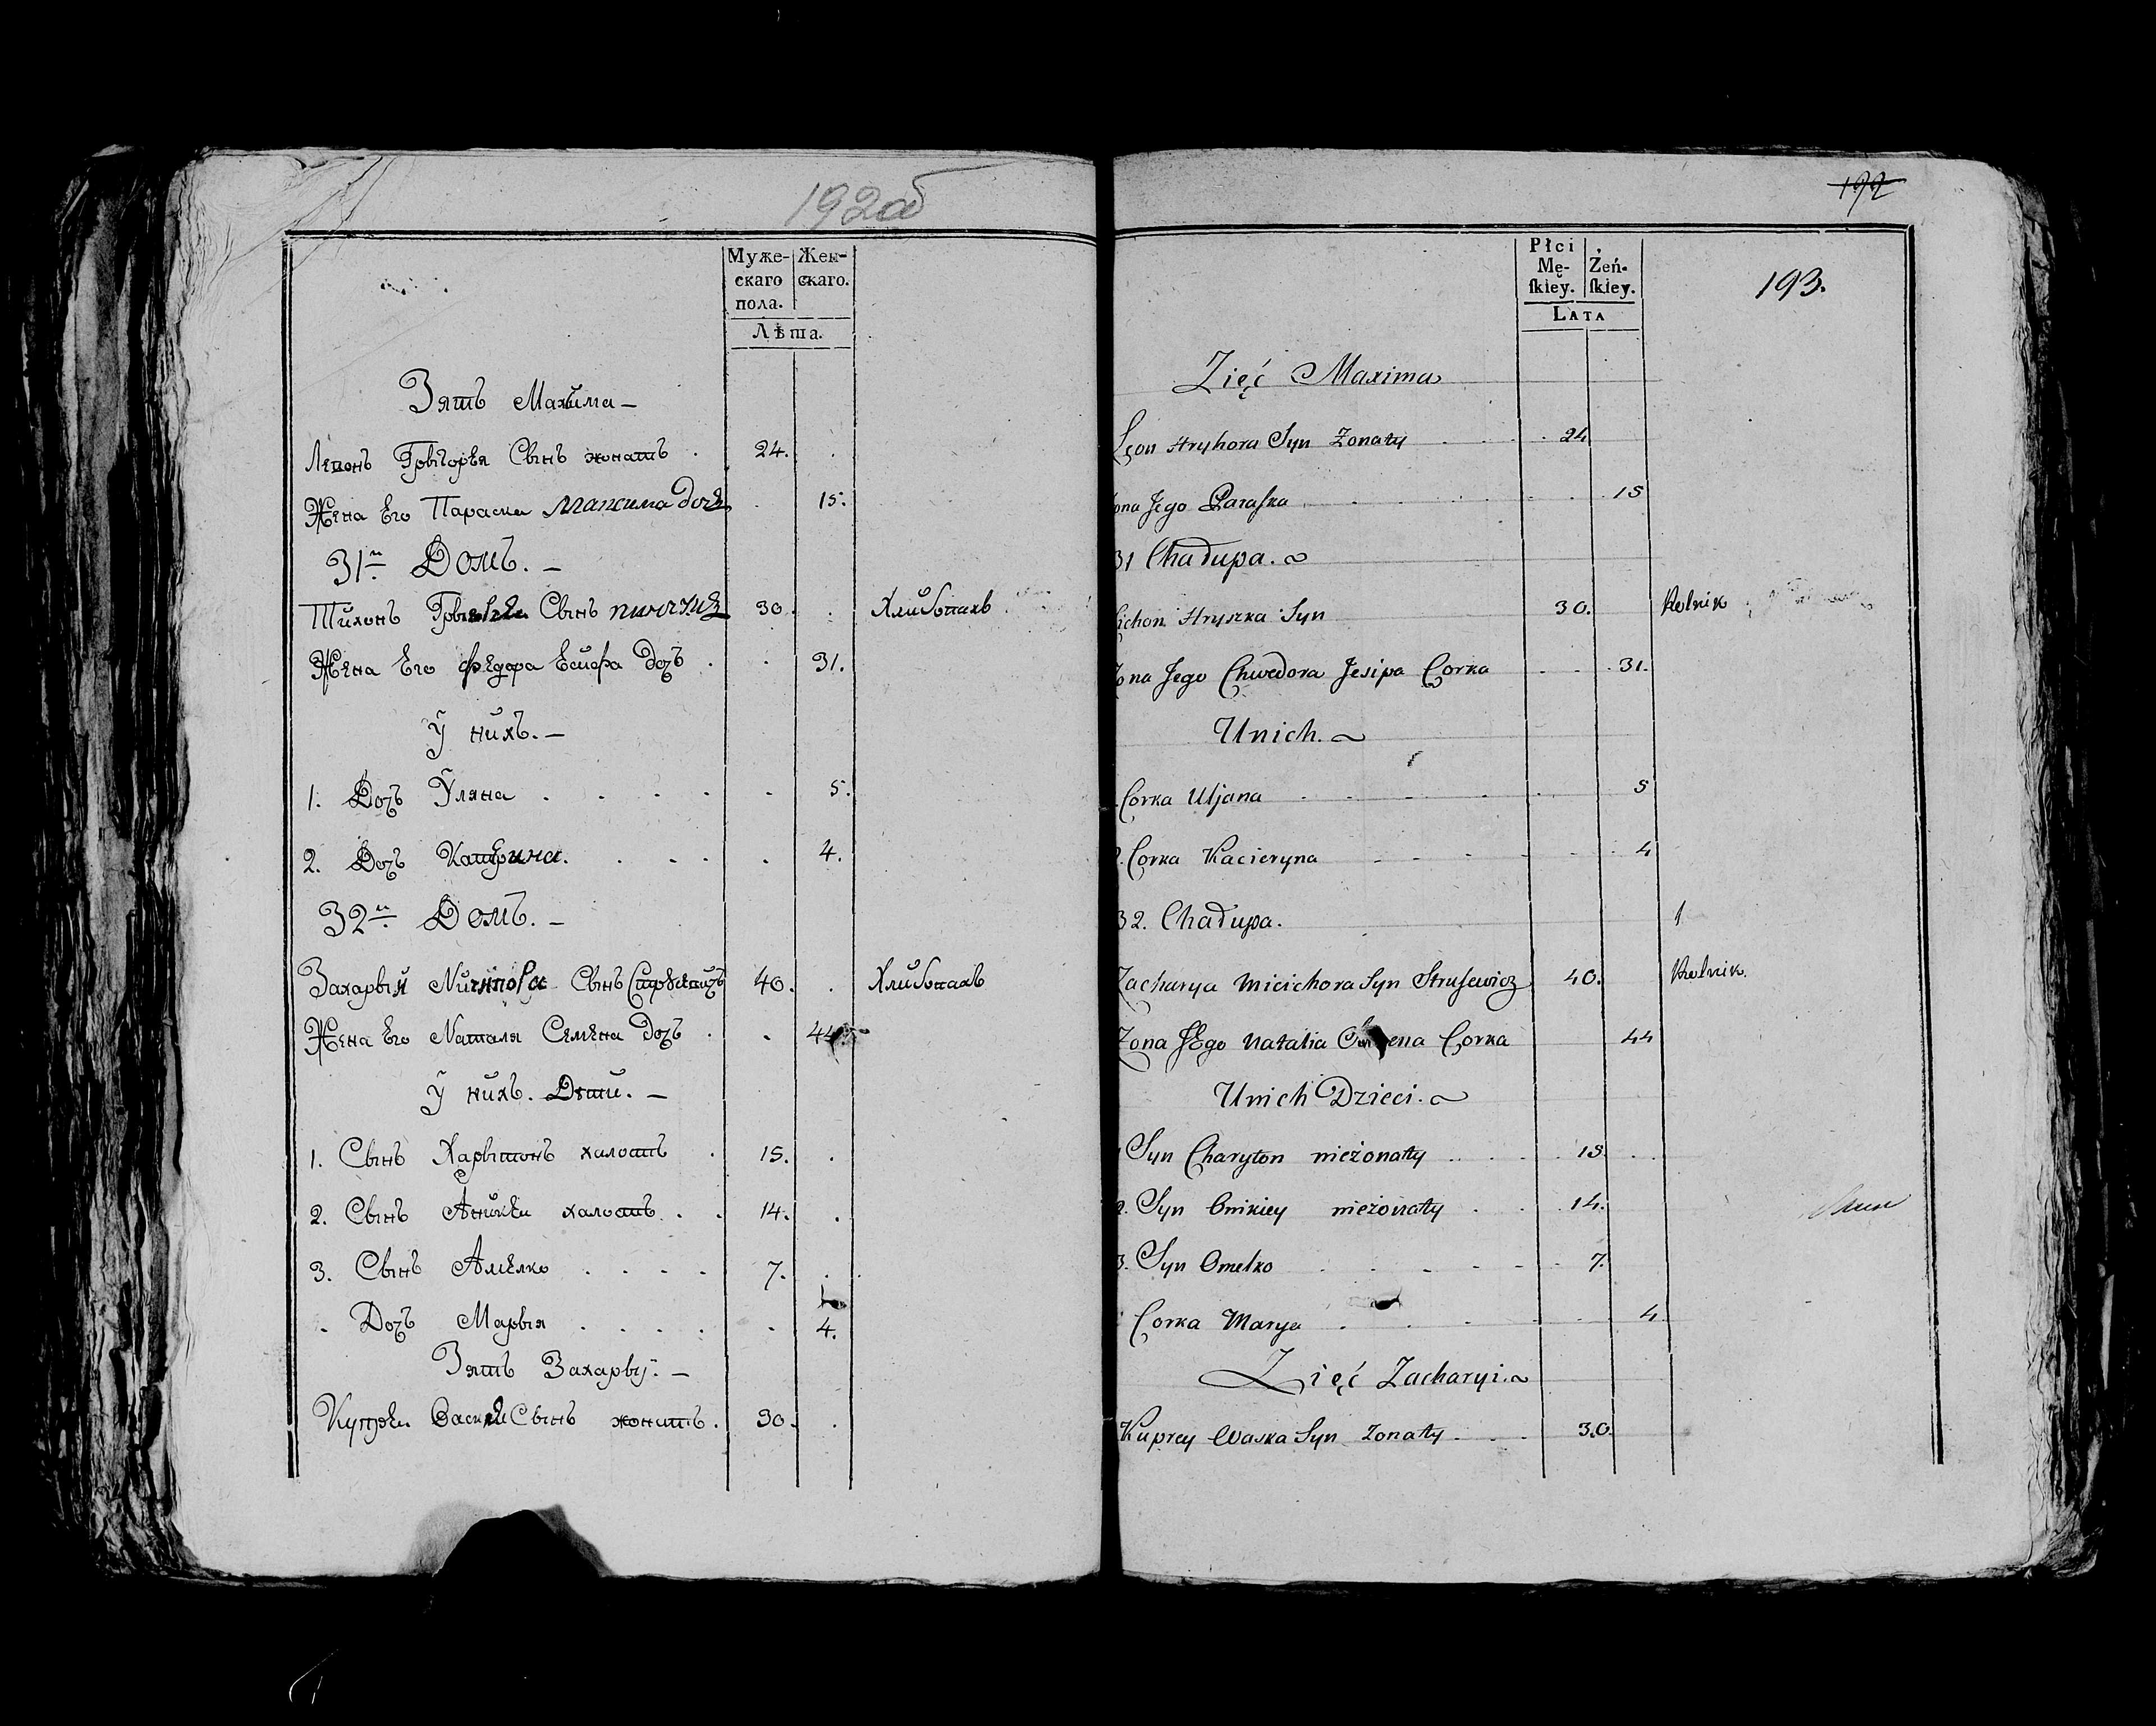 192об
Муже-
скаго
пола.
Жен-
скаго.
Лѣта.
Зять Махима —
Леѡнъ Грыгорѣя Сынъ жонатъ . 24.
Жена Его Параска Максима Дочь 15.
31й Домъ. —
Тихонъ Сынъ 30. Хлибопахъ
Жена Его Федора Есифа Дочъ . 31.
У нихъ. —
1. Дочъ Уляна . . . . 5.
2. Дочъ Катерина . . . 4.
32й Домъ. —
Захарый Сынъ 40. Хлибопахъ
Жена Его Наталя Семена Дочъ . 44
У нихъ. Дѣти. —
1. Сынъ Харытонъ халостъ . 15.
2. Сынъ Аникѣй халостъ . . 14.
3. Сынъ Амелко . . . . 7.
. Дочъ Марыя . . . . 4.
Зять Захарыу. —
Купрѣй Васкя Сынъ жонатъ . 30.
192
193.
Płci
Mę-
ſkiey.
Żeń-
ſkiey.
LATA
Zięć Maxima
Leon Hryhora Syn Żonaty . . . 24
ona Jego Paraſka . . . . 15
31 Chałupa.
ichon Hryszka Syn 30. Rolnik
ona Jego Chwedora Jesipa Corka . . 31.
Unich.
Corka Uljana . . . . 5
2. Corka Kacieryna . . . . 4
32. Chałupa. 1
Zacharya Micichora Syn Strusewicz 40. Rolnik.
Zona Jego Natalia Corka 44
Unich Dzieci.
Syn Charyton nieżonatty . . . 15
2. Syn Onikiey nieżonatty . . . 14.
3. Syn Omelko . . . . . 7.
Corka Marya . . . . . 4
Zięć Zacharyi.
Kuprey Waska Syn Zonatty . . . 30.